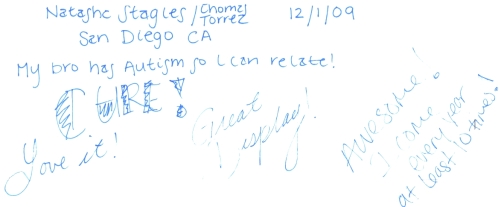 Natasha Stagles / Thomas Torrez 12/1/09
San Diego CA
My bro has Autism so I can relate!
CURE!
Love it!
Great Display!
Awesome!
I come
every year
at least 10 times!